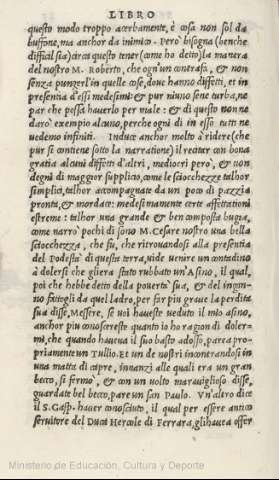 LIBRO
questo modo troppo acerbamente, è cosa non sol da
buffone, ma anchor da inimico. Però bisogna (benche
difficil sia) circa questo tener (come ho detto) la manera
del nostro M. Roberto, che ogn'un contrafà, & non
senza pungerl'in quelle cose, dove hanno diffetti, et in
presentia d'essi medesimi: & pur niuno se ne turba, ne
par che possa haverlo per male: & di questo non ne
darò exempio alcuno, perche ogni di in esso tutti ne
vedemo infiniti. Induce anchor molto à ridere (che
pur si contiene sotto la narratione) il recitar con bona
gratia alcuni diffetti d'altri, mediocri però, & non
degni di maggior supplicio, come le sciocchezze talhor
simplici, talhor accompagnate da un poco di pazzia
pronta, & mordace: medesimamente certe affettationi
estreme: talhor una grande & ben composta bugia,
come narrò pochi dì sono M. Cesare nostro una bella
sciocchezza, che fu, che ritrovandosi alla presentia
del Podestà di questa terra, vide venire un contadino
à dolersi che gliera stato rubbato un'Asino, il qual,
poi che hebbe detto della povertà sua, & del ingan-
no fattogli da quel ladro, per far piu grave la perdita
sua disse, Messere, se voi haveste veduto il mio asino,
anchor piu conoscereste quanto io ho ragion di doler-
mi, che quando haveva il suo basto adosso, parea pro-
priamente un Tullio. Et un de nostri incontrandosi in
una matta di capre, innanzi alle quali era un gran
becco, si fermò, & con un volto maraviglioso disse,
guardate bel becco, pare un san Paulo. Un'altro dice
il S. Gasp. haver conosciuto, il qual per essere antico
servitore del Duca Hercole di Ferrara, gli haveva offer
Ministerio de Educación, Cultura y Deporte